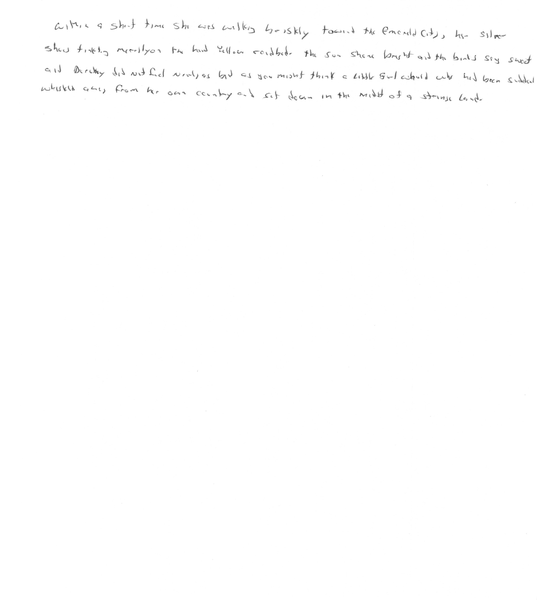 within a short time she was walking briskly toward the Emerald City, her silver
shoes tinkling merrily on the hard Yellow roadbed. the sun shone bright and the birds sang sweet
and Dorothy did not feel nearly as bad as you might think a little Girl would who had been sudden
whisked away from her own country and set down in the midst of a strange land.